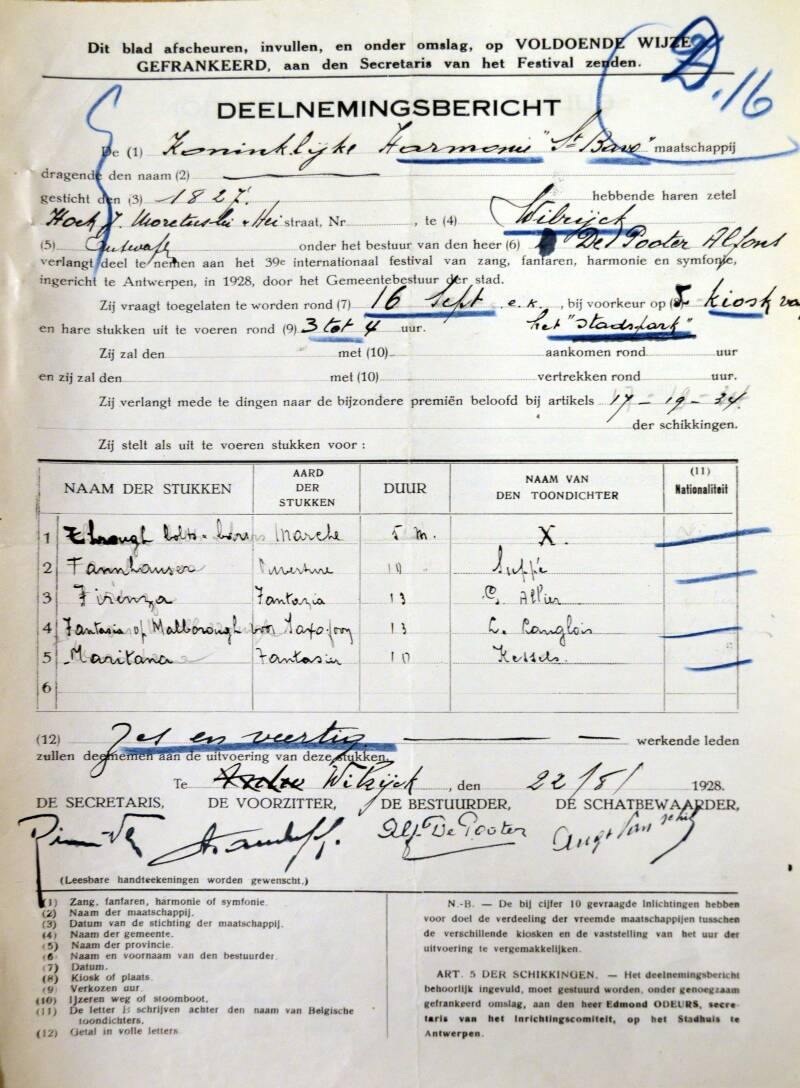 Dit blad afscheuren, invullen, en onder omslag, op VOLDOENDE WIJZE
GEFRANKEERD, aan den Secretaris van het Festival zenden.
D.16
DEELNEMINGSBERICHT
De (1) Koninklijke Harmonie "St Bavo" maatschappij
dragende den naam (2)
gesticht den (3) 1827. hebbende haren zetel
Hoek J. Moretuslei & Hei straat, Nr , te (4) Wilrijck
(5) onder het bestuur van den heer (6) De Pooter Alfons
verlangt deel te nemen aan het 39e internationaal festival van zang, fanfaren, harmonie en symfonie,
ingericht te Antwerpen, in 1928, door het Gemeentebestuur der stad.
Zij vraagt toegelaten te worden rond (7) 16 Sept. e.k., bij voorkeur op kiosk van
en hare stukken uit te voeren rond (9) 3 tot 4 uur. het "Stadspark"
Zij zal den met (10) aankomen rond uur
en zij zal den met (10) vertrekken rond uur.
Zij verlangt mede te dingen naar de bijzondere premiën beloofd bij artikels 17 - 19 - 24.
der schikkingen.
Zij stelt als uit te voeren stukken voor :
NAAM DER STUKKEN AARD DER STUKKEN DUUR NAAM VAN DEN TOONDICHTER (11) Nationaliteit
1 Through Marche 5 m. X.
2 Tannhauser Ouverture 10 Suppé
3 Firenza Fantazia 13 G. Allier
4 Fantasia op Malborough voor Saxofoon 13 L. Langlois
5 Maritana Fantasier 10 Kessels.
6
(12) Zes en veertig werkende leden
zullen deelnemen aan de uitvoering van deze stukken.
Te Wilrijck, den 22/8/ 1928.
DE SECRETARIS, DE VOORZITTER, DE BESTUURDER, DE SCHATBEWAARDER,
Alf. De Pooter
(Leesbare handteekeningen worden gewenscht.)
(1) Zang, fanfaren, harmonie of symfonie.
(2) Naam der maatschappij.
(3) Datum van de stichting der maatschappij.
(4) Naam der gemeente.
(5) Naam der provincie.
(6 Naam en voornaam van den bestuurder.
(7) Datum.
(8) Kiosk of plaats.
(9) Verkozen uur.
(10) IJzeren weg of stoomboot.
(11) De letter is schrijven achter den naam van Belgische
toondichters.
(12) Getal in volle letters.
N.-B. — De bij cijfer 10 gevraagde inlichtingen hebben
voor doel de verdeeling der vreemde maatschappijen tusschen
de verschillende kiosken en de vaststelling van het uur der
uitvoering te vergemakkelijken.
ART. 5 DER SCHIKKINGEN. — Het deelnemingsbericht
behoorlijk ingevuld, moet gestuurd worden, onder genoegzaam
gefrankeerd omslag, aan den heer Edmond ODEURS, secre-
taris van het Inrichtingscomiteit, op het Stadhuis te
Antwerpen.